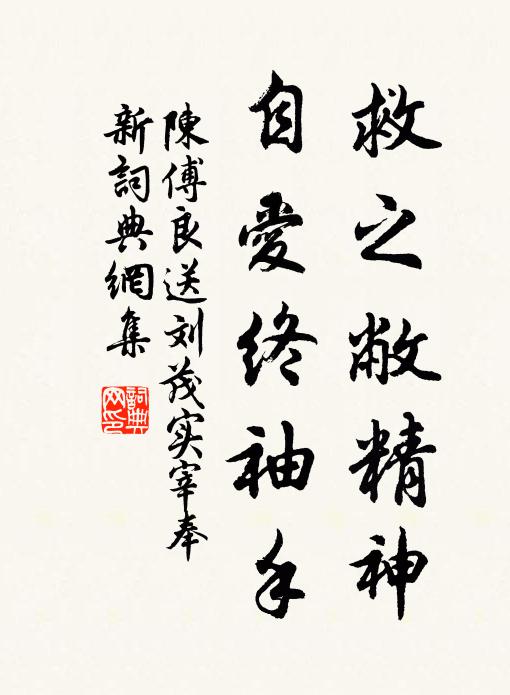 救之敝精神
自愛終袖手
陳傅良送刘茂实宰奉
新詞典網集
詞典
网印